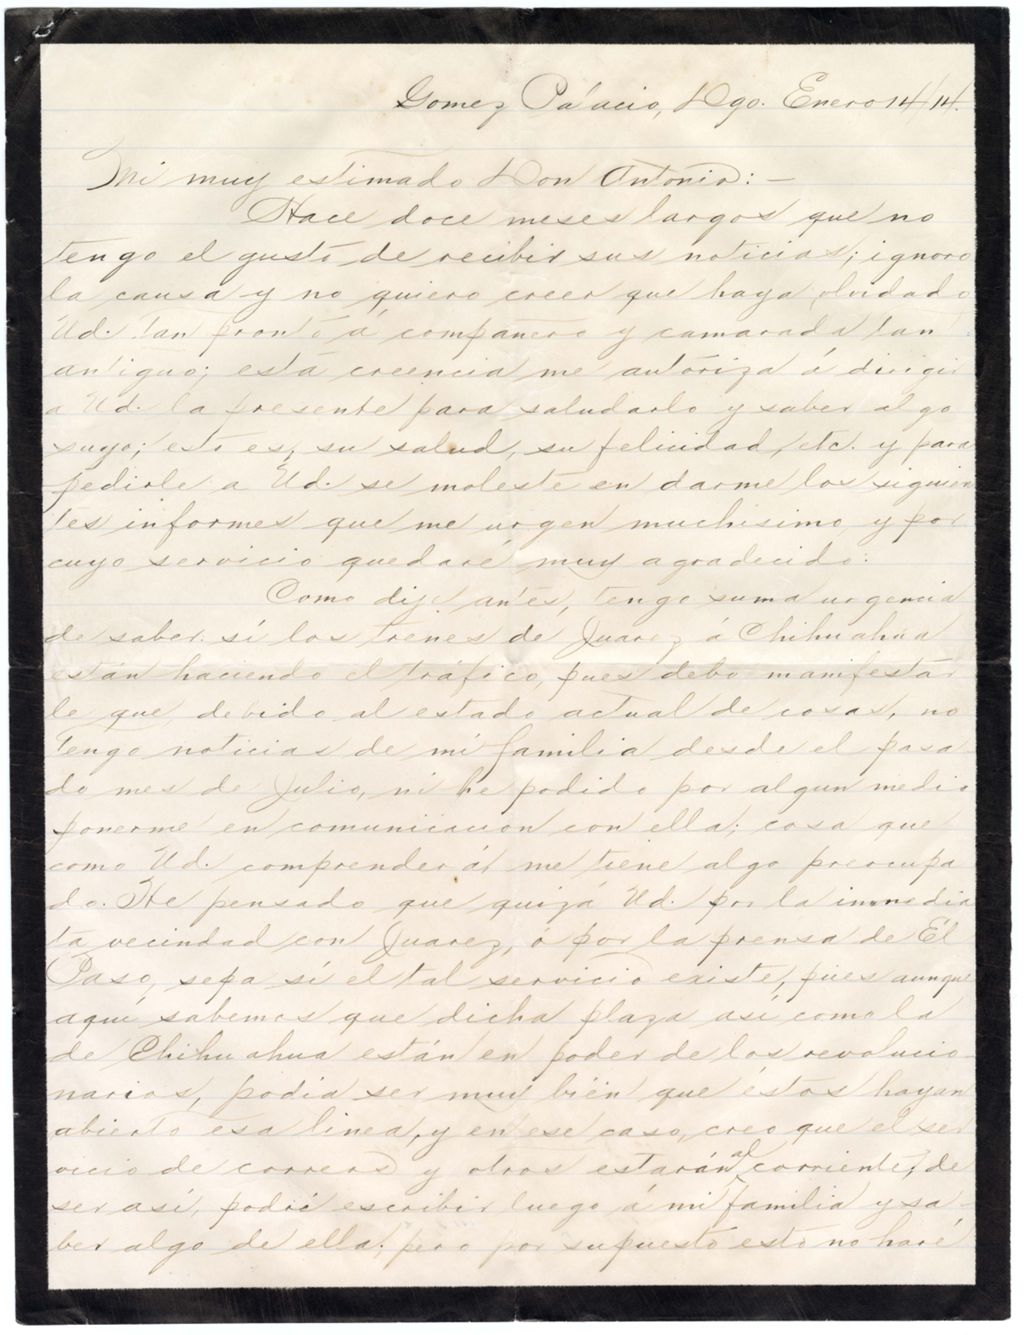 Gomez Palacio, Dgo. Enero 14/14.
Mi muy estimado Don Antonio:—
Hace doce meses largos que no
tengo el gusto de recibir sus noticias; ignoro
la causa y no quiero creer que haya olvidado
Ud. tan pronto á compañero y camarada tan
antiguo; esta creencia me autoriza á dirigir
a Ud. la presente para saludarlo y saber algo
suyo; esto es, su salud, su felicidad, etc. y para
pedirle a Ud. se moleste en darme los siguien
tes informes que me urgen muchisimo y por
cuyo servicio quedaré muy agradecido.
Como dije antes, tengo suma urgencia
de saber si los trenes de Juarez á Chihuahua
están haciendo el tráfico, pues debo manifestar
le que, debido al estado actual de cosas, no
tengo noticias de mi familia desde el pasa
do mes de Julio, ni he podido por algun medio
ponerme en comunicacion con ella; cosa que
como Ud. comprenderá me tiene algo preocupa
do. He pensado que quizá Ud. por la inmedia
ta vecindad con Juarez, ó por la prensa de El
Paso, sepa si el tal servicio existe, pues aunque
aquí sabemos que dicha plaza así como la
de Chihuahua están en poder de los revolucio
narios, podia ser muy bién que éstos hayan
abierto esa linea, y en ese caso, creo que el ser
vicio de correos y otros estarán al corriente; de
ser así, podré escribir luego á mi familia y sa
ber algo de ella; pero por supuesto esto no haré